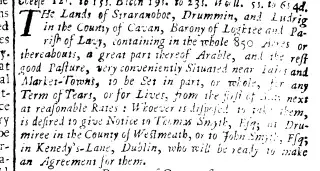 THe Lands of Siraranoboe, Drummin, and Ludrig
in the County of Cavan, Barony of Loghtee and Pa-
rish of Lavy, containing in the whole 850 Acres or
thereabouts, a great part thereof Arable, and the rest
good Pasture, very conveniently Situated near Fairs and
Market-Towns, to be Set in part, or whole, for any
Term of Years, or for Lives, from the first of next
at reasonable Rates: Whoever is disposed to take them,
is desired to give Notice to Thomas Smyth, Esq; at Dru-
miree in the County of Westmeath, or to John Smyth, Esq;
in Kenedy's-Lane, Dublin, who will be ready to make
an Agreement for them.